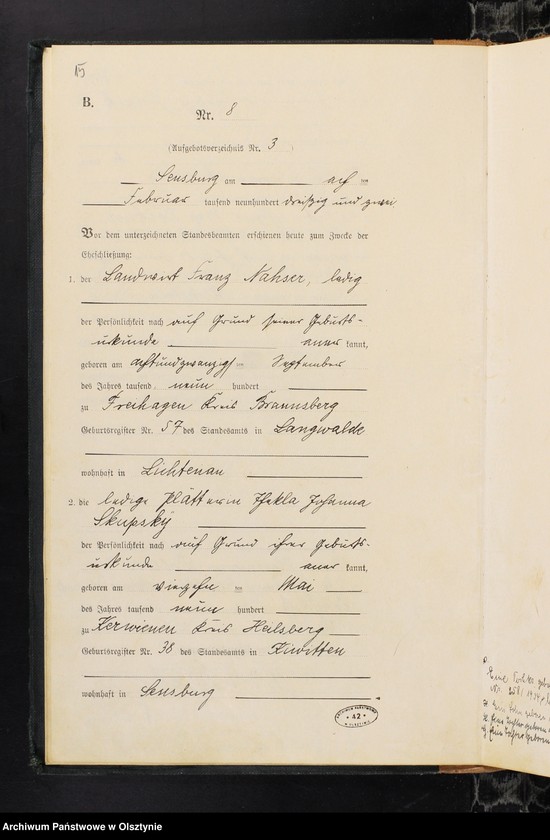 15
B.
Nr. 8
(Aufgebotsverzeichnis Nr. 3)
Sensburg am acht ten
Februar tausend neunhundert dreißig und zwei
Vor dem unterzeichneten Standesbeamten erschienen heute zum Zwecke der
Eheschließung:
1. der Landwirt Franz Nahser, ledig
der Persönlichkeit nach auf Grund seiner Geburts-
urkunde aner kannt,
geboren am achtundzwanzigsten September
des Jahres tausend neun hundert
zu Freihagen Kreis Braunsberg
Geburtsregister Nr. 57 des Standesamts in Langwalde
wohnhaft in Lichtenau
2. die ledige Plätterin Thekla Johanna
Skupsky
der Persönlichkeit nach auf Grund ihrer Geburts-
urkunde aner kannt,
geboren am vierzehn ten Mai
des Jahres tausend neun hundert
zu Kerwienen Kreis Heilsberg
Geburtsregister Nr. 38 des Standesamts in Kiwitten
wohnhaft in Sensburg
42
Archiwum Państwowe w Olsztynie